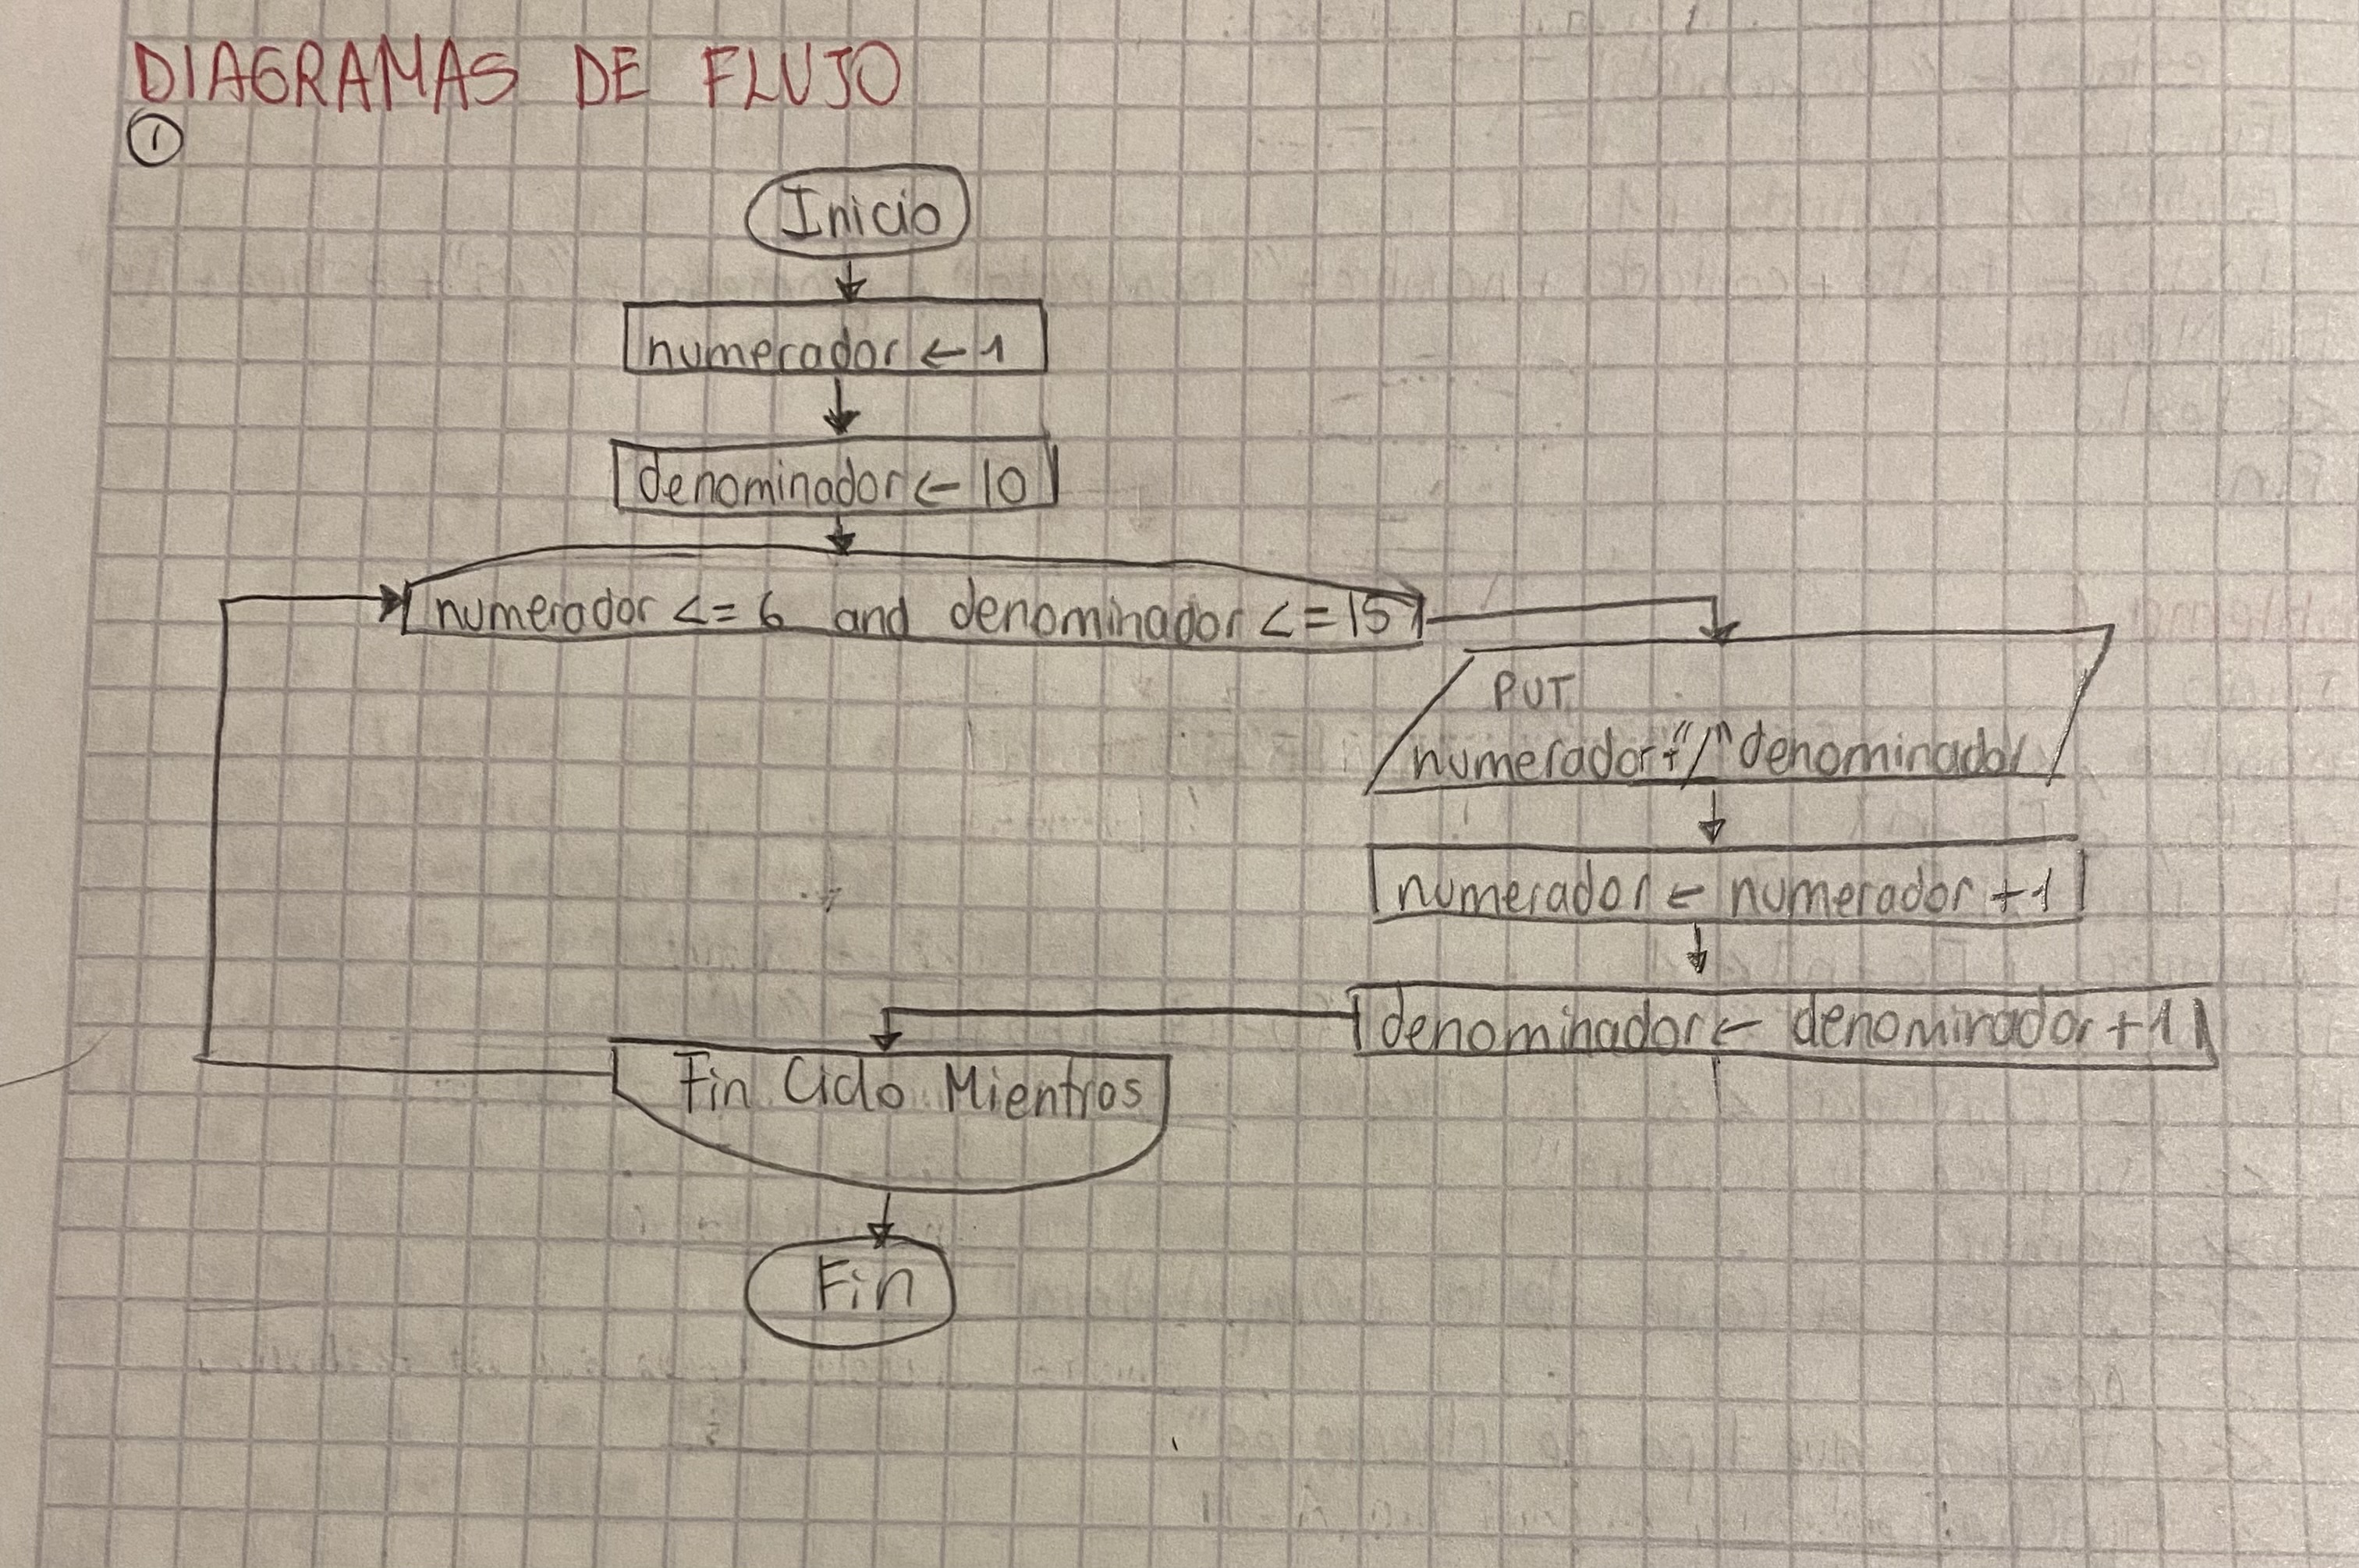 DIAGRAMAS DE FLUJO
1
Inicio
numerador ← 1
denominador ← 10
numerador <= 6 and denominador <= 15
PUT
numerador+"/" denominador
numerador ← numerador + 1
denominador ← denominador + 1
Fin Ciclo Mientras
Fin